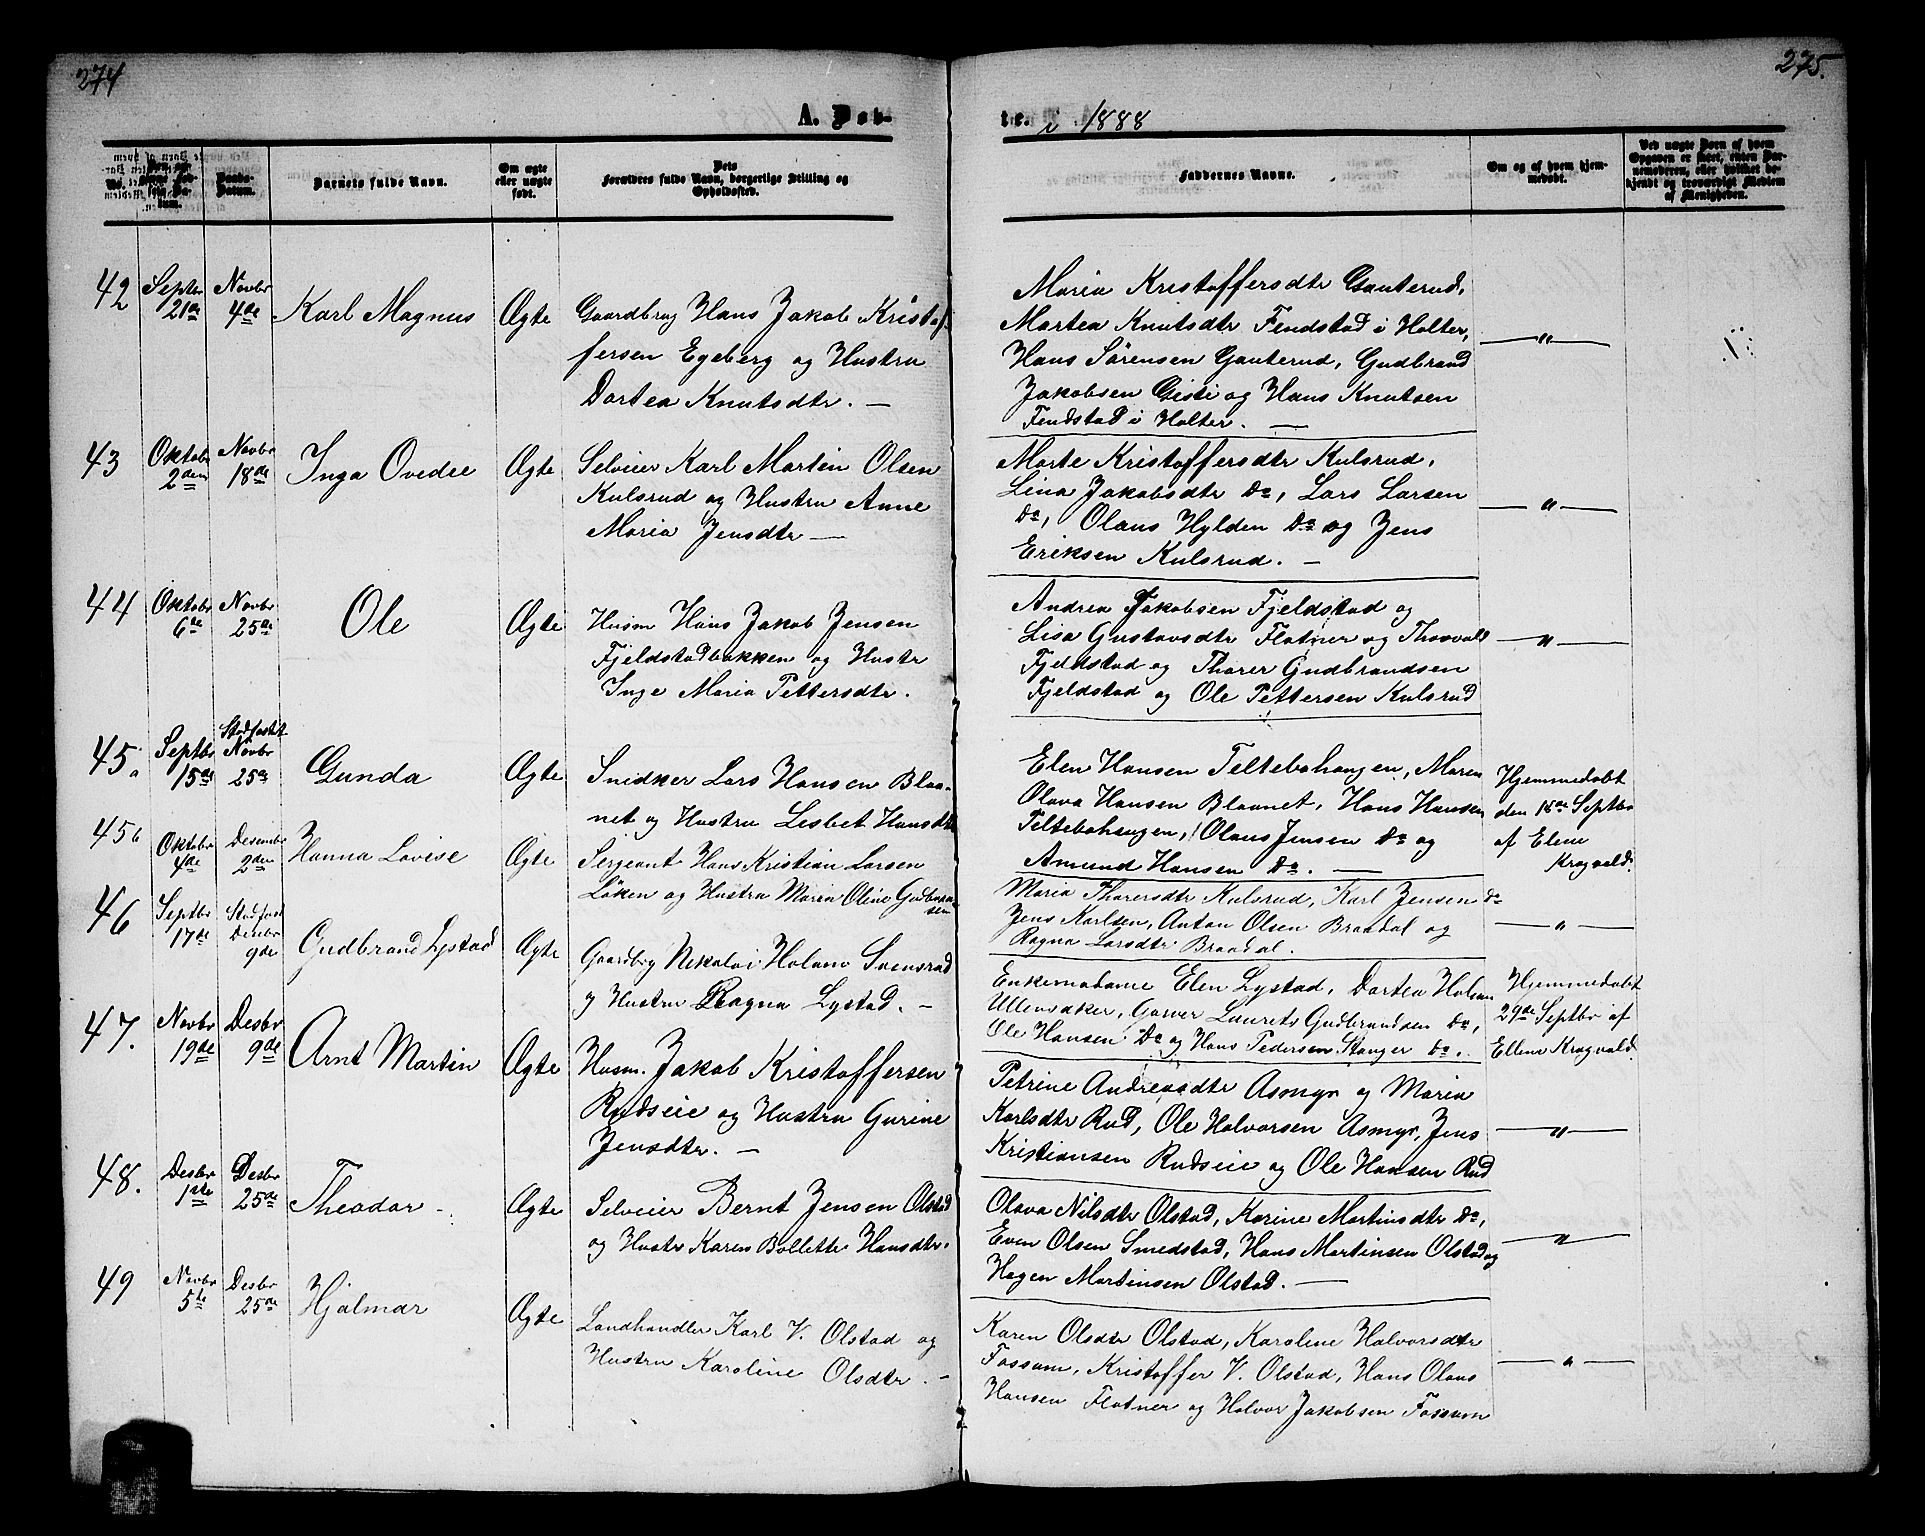 274
275.
A. Døb-
te. i 1888
No.
Daabs-Datum.
Barnets fulde Navn.
Om ægte eller uægte født.
Dets Forældres fulde Navn, borgerlige Stilling og Opholdssted.
Faddernes Navne.
Om og af hvem hjemmedøbt.
Ved uægte Børn af hvem Opgaven er
42 Septbr 21de Novbr 4de Karl Magnus Ægte
Gaardbrug Hans Jakob Kristof-
fersen Egeberg og Hustru
Dortea Knutsdtr. —
Maria Kristoffersdtr Gauterud,
Martea Knutsdtr Fendstad i Holter,
Hans Sørensen Gauterud, Gudbrand
Jakobsen Gisti og Hans Knutsen
Fendstad i Holter. —
— " —
43 Oktobr 2den Novbr 18de Inga Ovedie Ægte
Selveier Karl Martin Olsen
Kulsrud og Hustru Anne
Maria Jensdtr —
Marte Kristoffersdtr Kulsrud,
Lina Jakobsdtr Do, Lars Larsen
Do, Olaus Hylden Do og Jens
Eriksen Kulsrud. —
— " —
44 Oktobr 6te Novbr 25de Ole Ægte
Husm Hans Jakob Jensen
Fjeldstadbakken og Hustr
Inge Maria Pettersdtr.
Andrea Jakobsen Fjeldstad og
Lisa Gustavsdtr Flatner og Thorvald
Fjeldstad og Thorer Gudbrandsen
Fjeldstad og Ole Pettersen Kulsrud
— " —
45a Septbr 15de Stadfæstet Novbr 25de Gunda Ægte
Snidker Lars Hansen Blaa-
net og Hustru Lisbet Hansdtr
Elen Hansen Teltebohaugen, Maren
Olava Hansen Blaanet, Hans Hansen
Teltebohaugen, Olaus Jensen Do og
Amund Hansen Do. —
Hjemmedøbt
den 15de Septbr
af Elene
Kragvald.
45b Oktobr 4de Desembr 2den Hanna Lovise Ægte
Sergeant Hans Kristian Larsen
Løken og Hustru Maren Oline Gudbrand-
sen
Maria Thorersdtr Kulsrud, Karl Jensen Do
Jens Karlsen, Anton Olsen Braadal og
Ragna Larsdtr Braadal.
— " —
46 Septbr 17de Stadfæst Desbr 9de Gudbrand Lystad Ægte
Gaardbrg Nikolai Holum Svensrud
og Hustru Ragna Lystad. —
Enkemadame Elen Lystad, Dortea Holum
Ullensaker, Garver Laurets Gudbrandsen Do,
Ole Hansen Do og Hans Pedersen Stanger Do.
Hjemmedøbt
29de Septbr af
Ellene Kragvald.
47. Novbr 19de Desbr 9de Arnt Martin Ægte
Husm. Jakob Kristoffersen
Rudseie og Hustru Gurine
Jensdtr. —
Petrine Andreasdtr Asmyr og Maria
Karlsdtr Rud, Ole Halvorsen Asmyr, Jens
Kristiansen Rudseie og Ole Hansen Rud
— " —
48. Desbr 1ste Desbr 25de Theodor — Ægte
Selveier Bernt Jensen Olstad
og Hustr Karen Bollette Hansdtr.
Olava Nilsdtr Olstad, Karine Martinsdtr Do,
Even Olsen Smedstad, Hans Martinsen Olstad og
Hagen Martinsen Olstad. —
— " —
49 Novbr 5te Desbr 25de Hjalmar Ægte
Landhandler Karl V. Olstad og
Hustru Karoline Olsdtr. —
Karen Olsdtr Olstad, Karoline Halvorsdtr
Fossum, Kristoffer V. Olstad, Hans Olaus
Hansen Flatner og Halvor Jakobsen Fossum
— " —